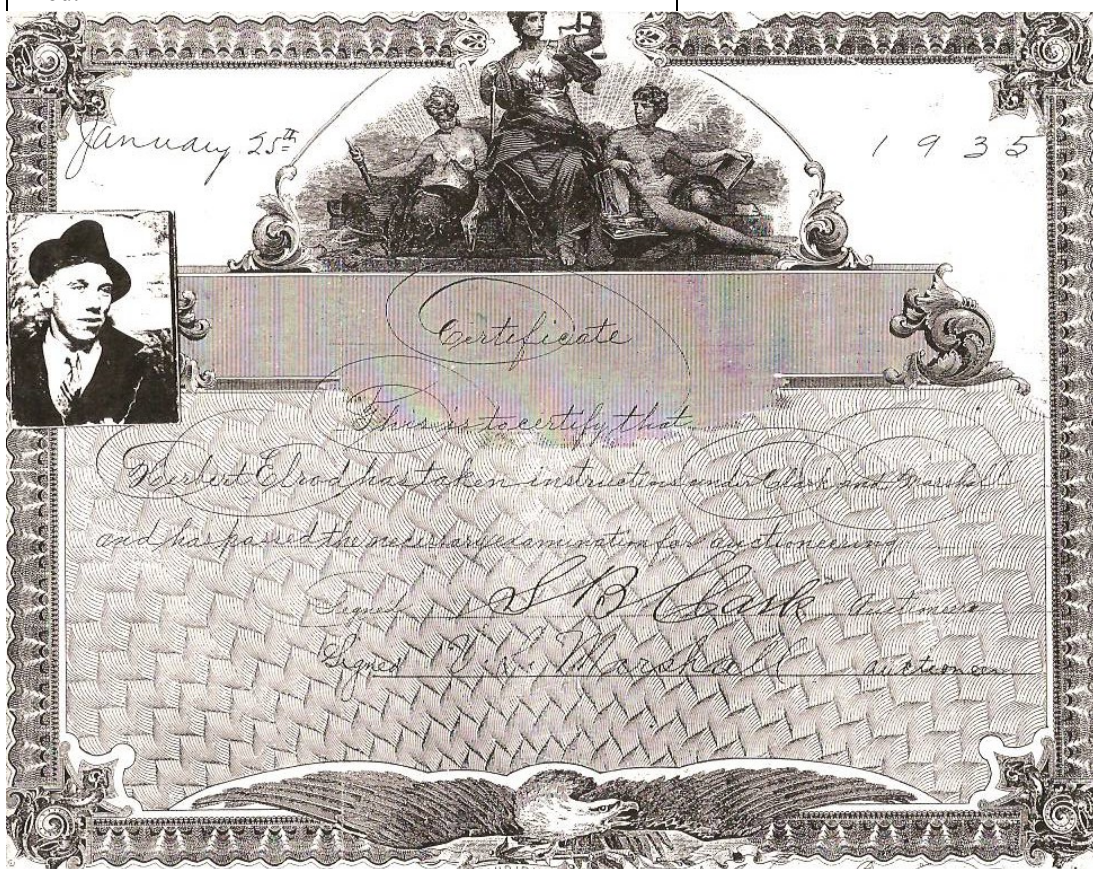 January 25th 1935
Certificate
This is to certify that
Herbert Elrod has taken instructions under Clark and Marshall
and has passed the necessary examination for auctioneering
Signed S B Clark Auctioneer
Signed Marshall auctioneer